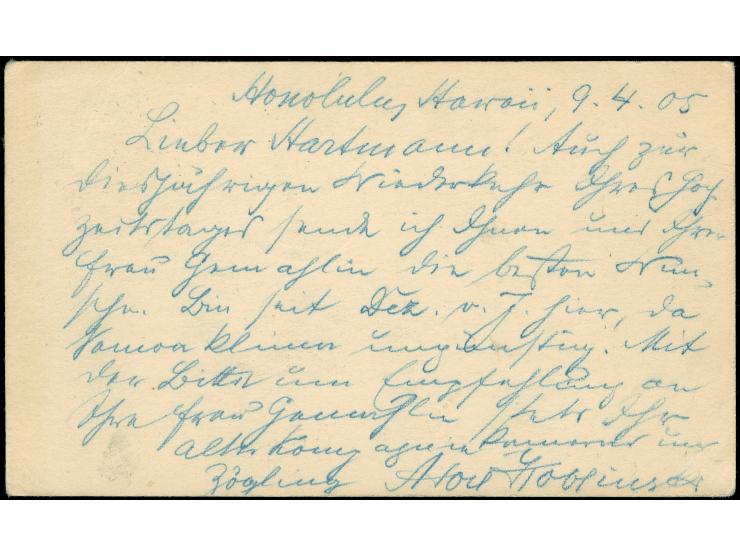 Honolulu, Hawaii, 9. 4. 05
Lieber Hartmann! Auch zur
diesjährigen Wiederkehr Ihres Hoch
zeitstages sende ich Ihnen und Ihrer
Frau Gemahlin die besten Wün-
sche. Bin seit Dez. v. J. hier, da
Samoaklima ungünstig. Mit
der Bitte um Empfehlung an
Ihre Frau Gemahlin stets Ihr
alter Kompagniekamerad und
Zögling